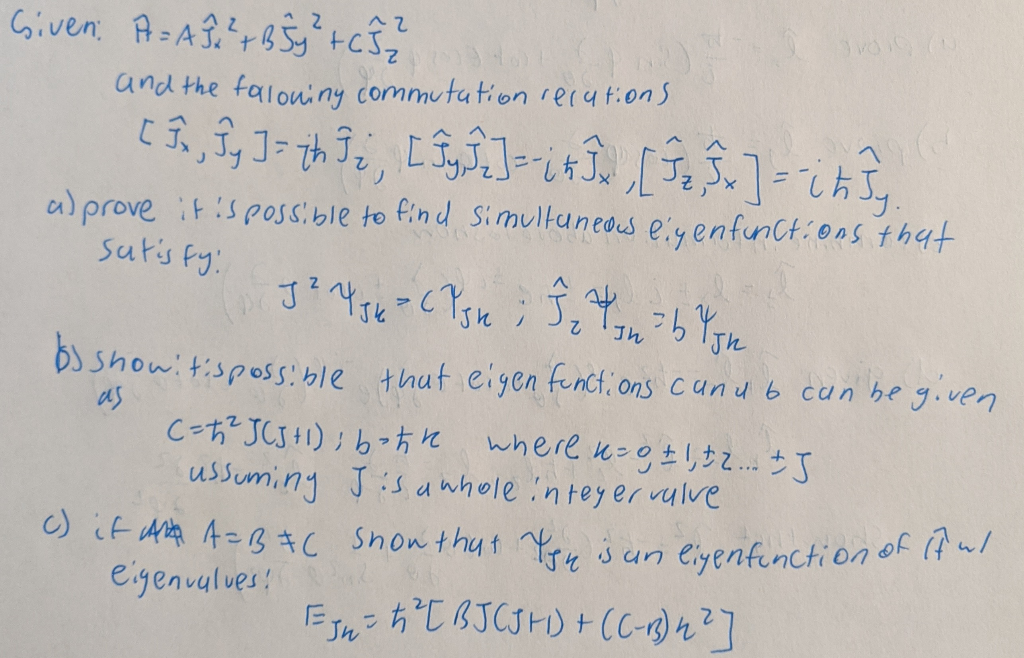 Given: Ĥ = AĴₓ² + BĴy² + CĴz²
and the falowing commutation relations
[Ĵₓ, Ĵy] = iħ Ĵz, [Ĵy, Ĵz] = -iħ Ĵₓ, [Ĵz, Ĵₓ] = -iħ Ĵy.
a) prove it is possible to find simultaneous eigenfunctions that
satisfy:
J² ψJK = CψJK ; Ĵz ψJK = b ψJK
b) show it is possible that eigenfunctions c and b can be given
as
C = ħ² J(J+1) ; b = ħK where K = 0, ±1, ±2... ±J
assuming J is a whole integer value
c) if A = B ≠ C show that ψJK is an eigenfunction of Ĥ w/
eigenvalues:
EJK = ħ² [BJ(J+1) + (C-B)K²]